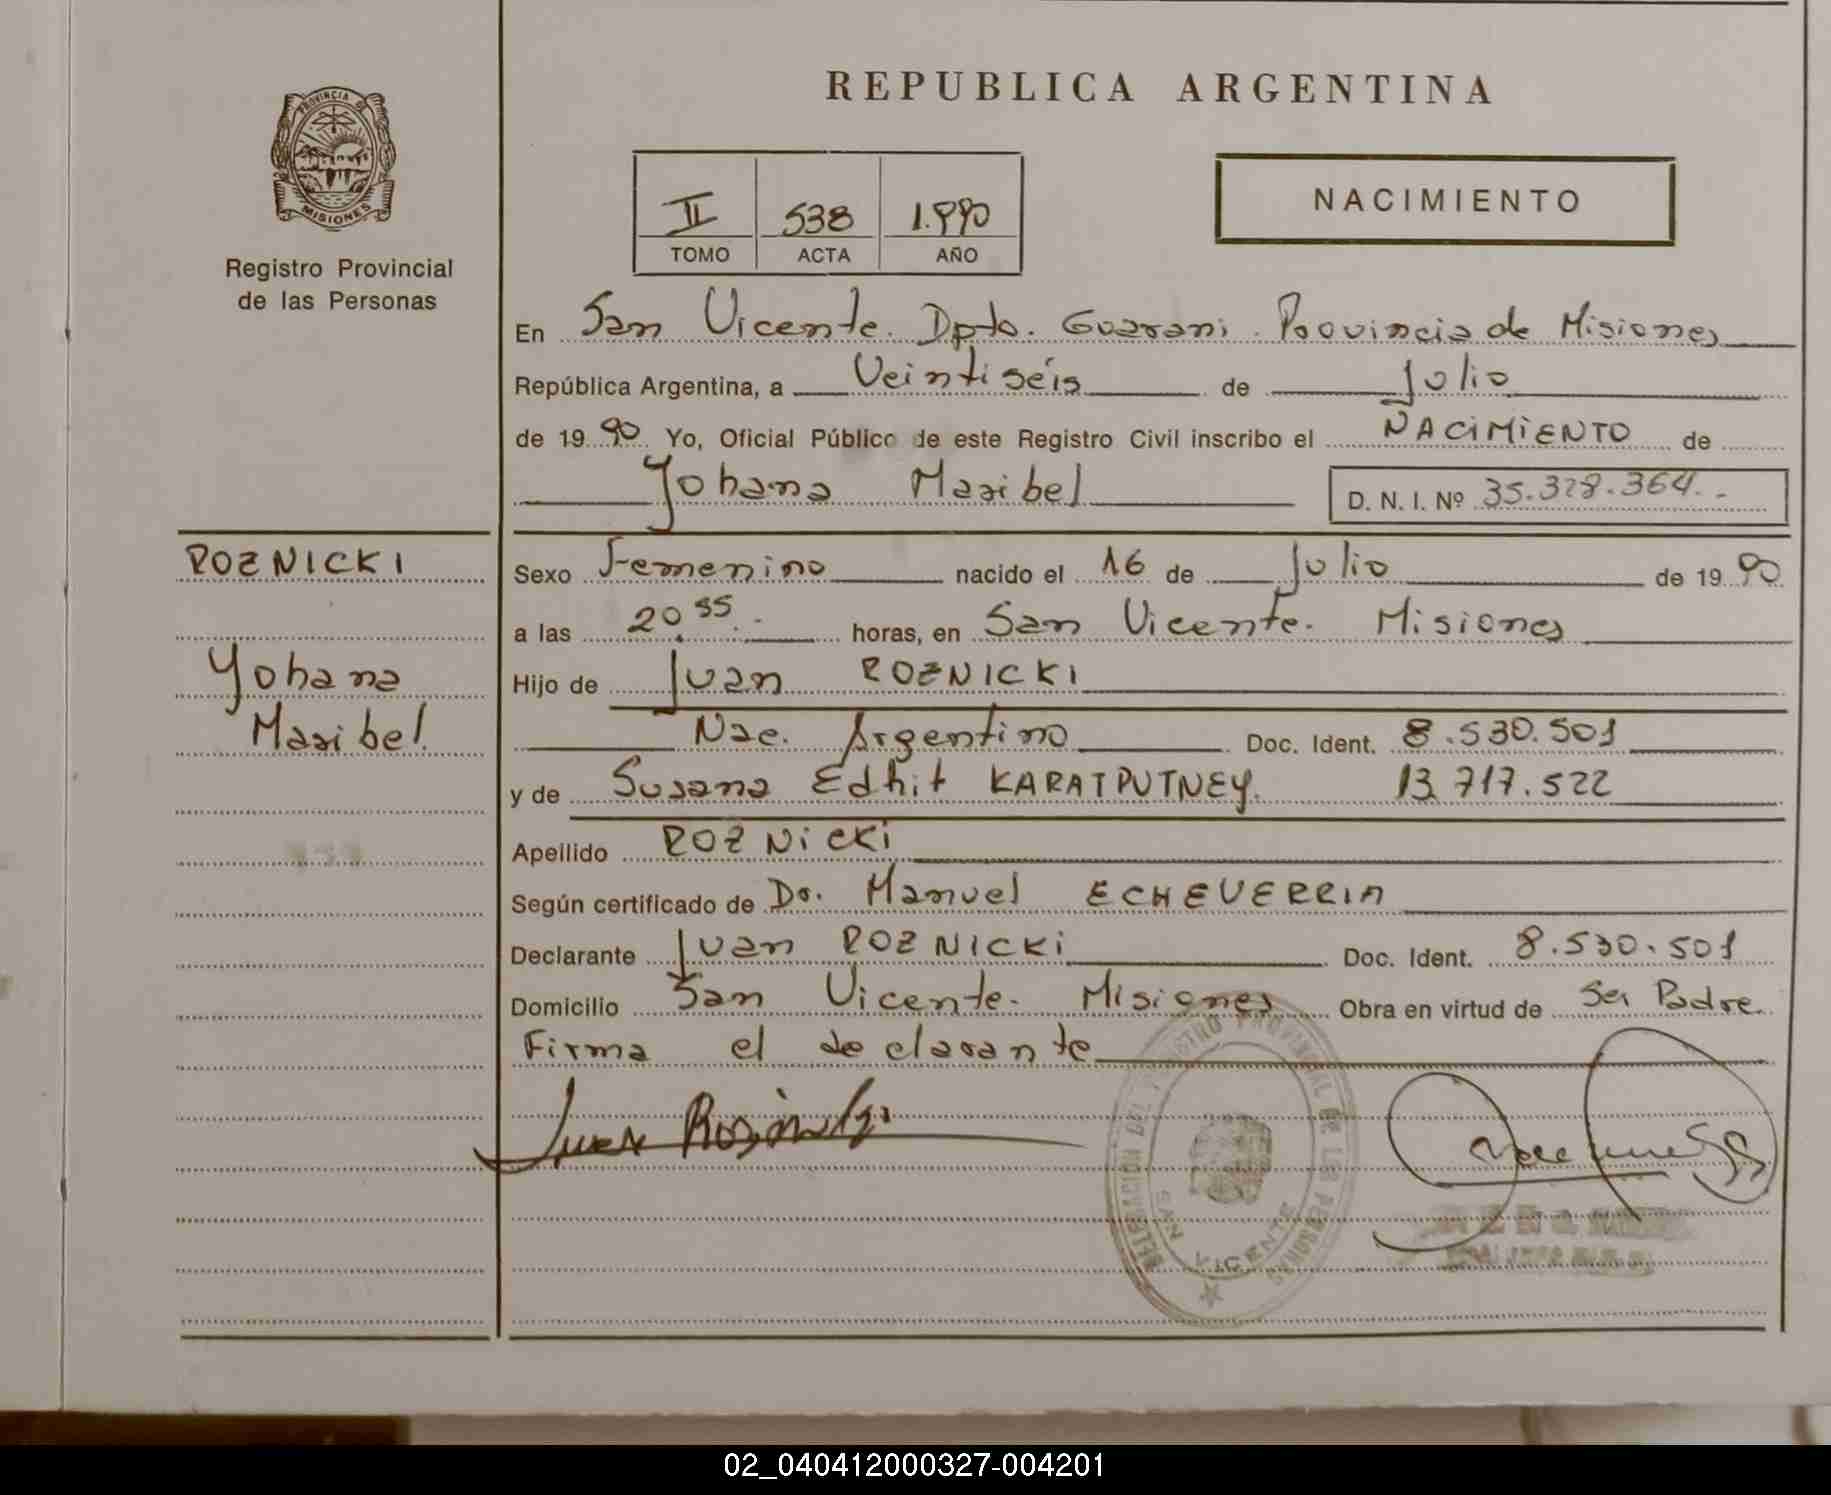 REPUBLICA ARGENTINA
PROVINCIA DE
MISIONES
Registro Provincial
de las Personas
II 538 1.990
TOMO ACTA AÑO
NACIMIENTO
En San Vicente. Dpto. Guarani. Provincia de Misiones
República Argentina, a Veintiséis de Julio
de 1990 Yo, Oficial Público de este Registro Civil inscribo el NACIMIENTO de
Yohana Maribel D. N. I. Nº 35.328.364.-
ROZNICKI
Yohana
Maribel.
Sexo Femenino nacido el 16 de Julio de 1990
a las 20 55.- horas, en San Vicente. Misiones
Hijo de Juan ROZNICKI
Nac. Argentino Doc. Ident. 8.530.501
y de Susana Edhit KARATPUTNEY. 13.717.522
Apellido ROZNICKI
Según certificado de Dr. Manuel ECHEVERRIA
Declarante Juan ROZNICKI Doc. Ident. 8.530.501
Domicilio San Vicente. Misiones Obra en virtud de Ser Padre.
Firma el declarante
Juan
DELEGACION DEL REGISTRO PROVINCIAL DE LAS PERSONAS
SAN VICENTE
02_040412000327-004201